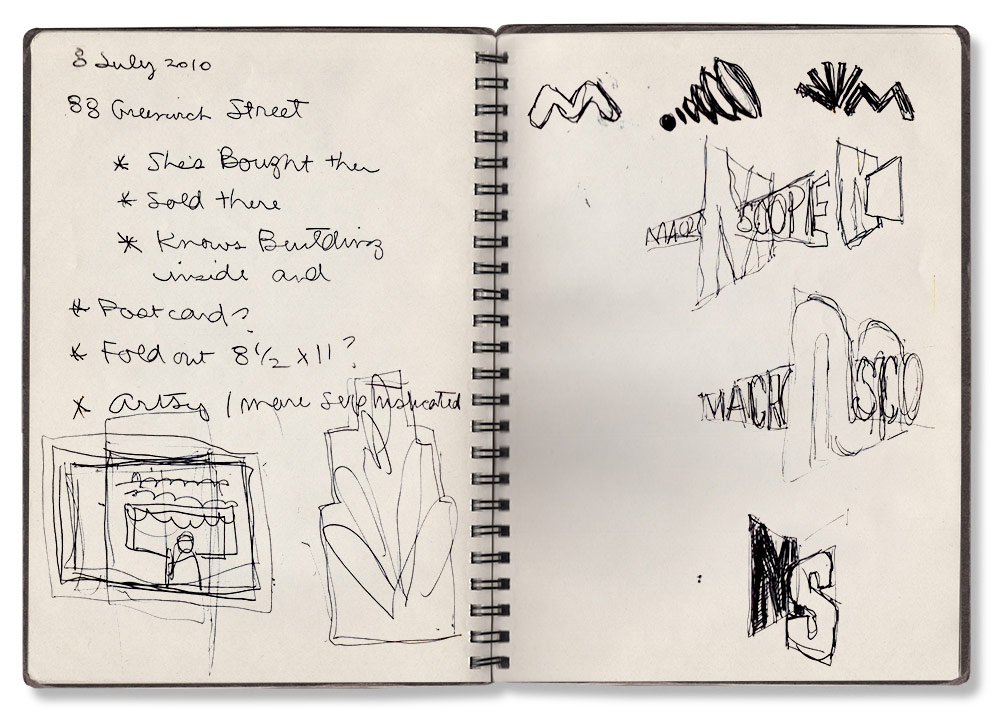 8 July 2010
88 Greenwich Street
* She's Bought ther
* Sold there
* Knows Building
inside and
* Postcard?
* Fold out 8 1/2 x 11 ?
* Artsy / more sophisticated
M
M
SCOPE
MACK
SCO
MS